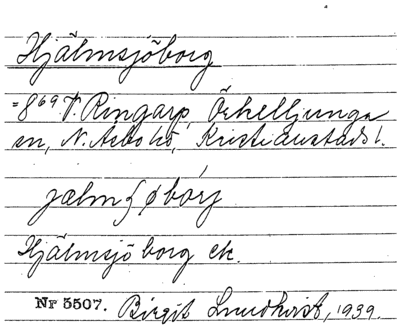 Hjälmsjöborg
= 8⁶⁹ V. Ringarp, Örkelljunga
sn, N. Åsbo hd, Kristianstads l.
jælmʃøbårj
Hjälmsjöborg ek.
Nr 5507. Birgit Lundkvist, 1939.